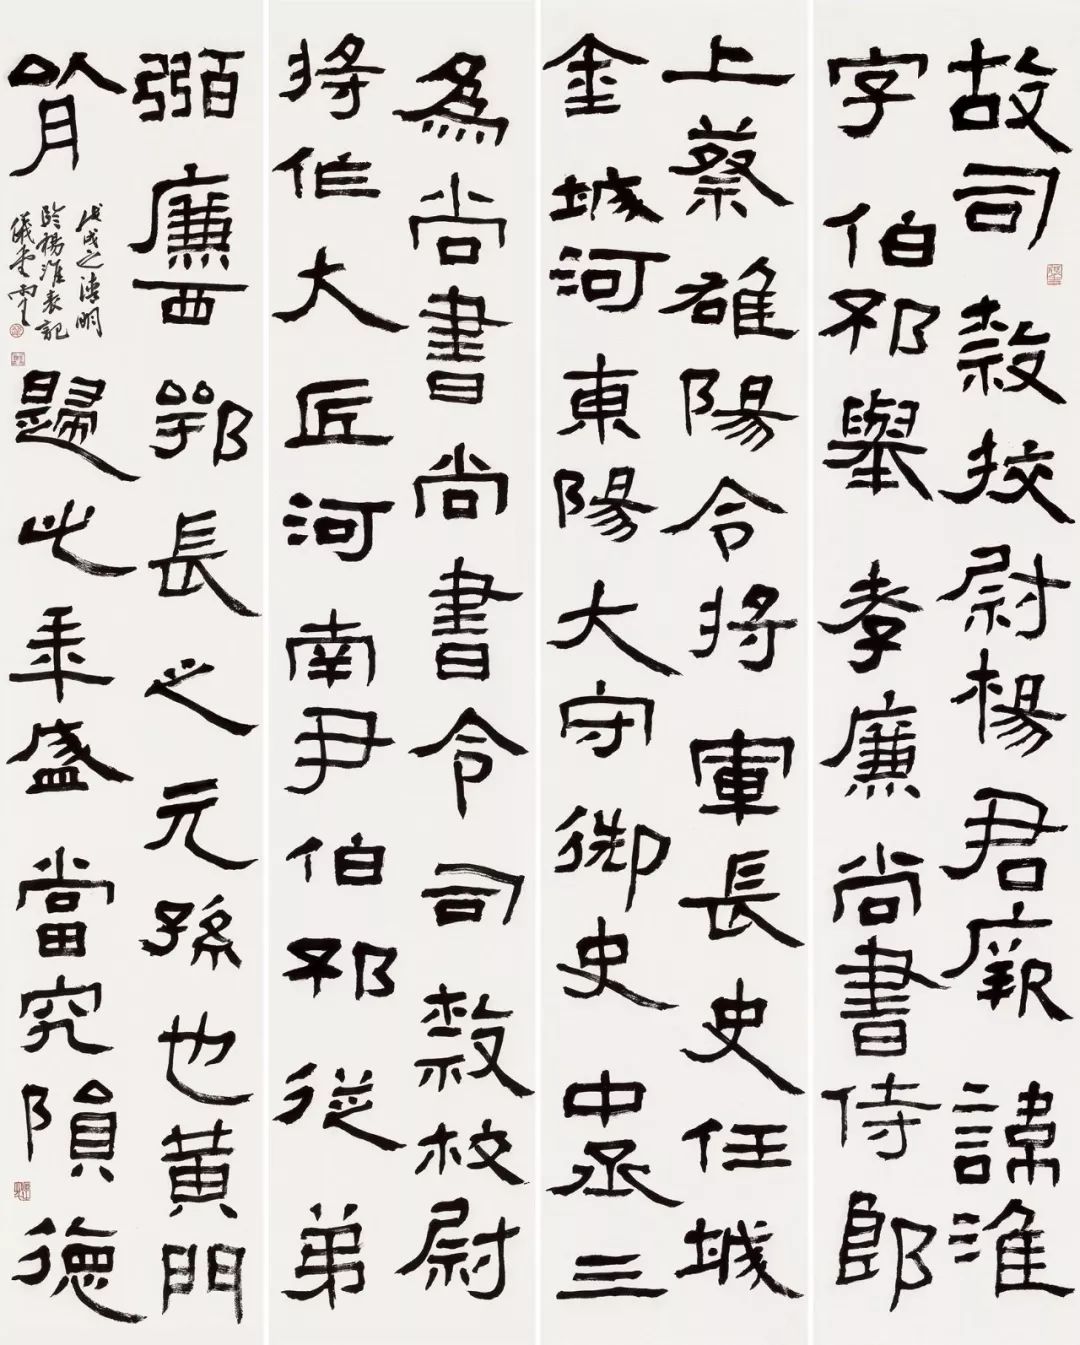 故司隸挍尉楊君厥諱淮
字伯邳舉孝廉尚書侍郎
上蔡雒陽令將軍長史任城
金城河東陽大守御史中丞三
為尚書尚書令司隸校尉
将作大匠河南尹伯邳從弟
弼廉西鄂長之元孫也黃門
以月歸此年盛當究隕德
戊戌之清明
臨楊淮表記
儀堂